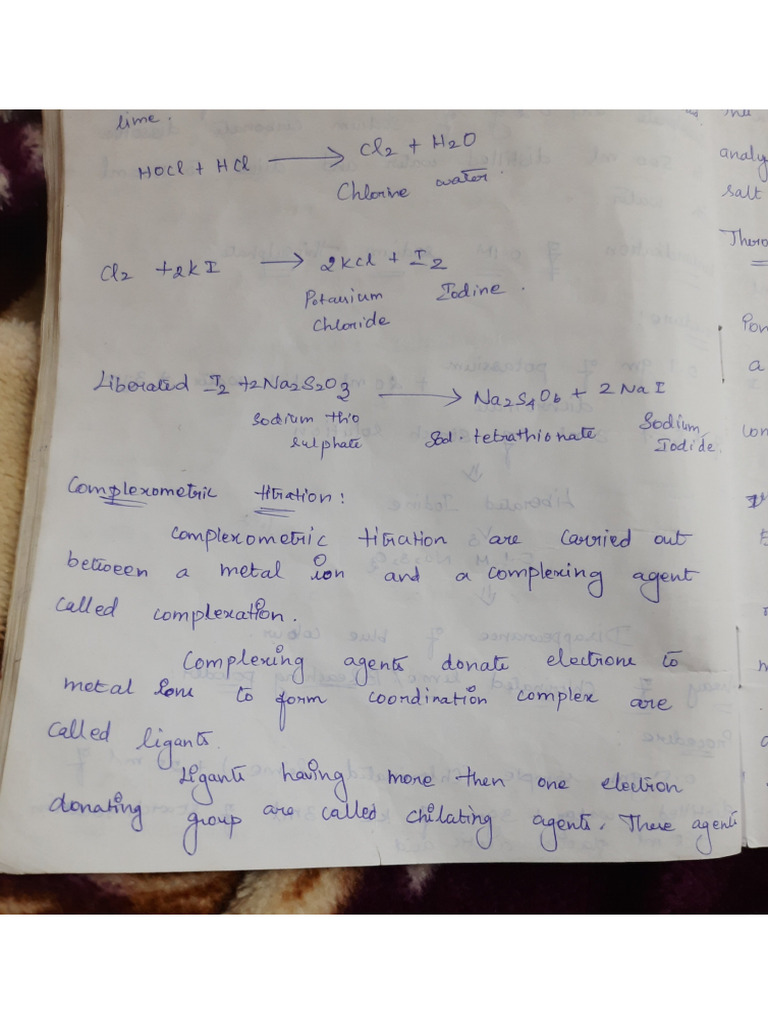 lime.
HOCl + HCl ⟶ Cl2 + H2O
Chlorine water.
Cl2 + 2KI ⟶ 2KCl + I2
Potassium Iodine.
Chloride
Liberated I2 + 2Na2S2O3 ⟶ Na2S4O6 + 2NaI
Sodium thio Sod. tetrathionate Sodium
sulphate Iodide.
Complexometric titration:
Complexometric titration are carried out
between a metal ion and a complexing agent
called complexation.
Complexing agents donate electrons to
metal ions to form coordination complex are
called ligants.
Ligants having more then one electron
donating group are called chilating agents. These agents
analy
salt
a